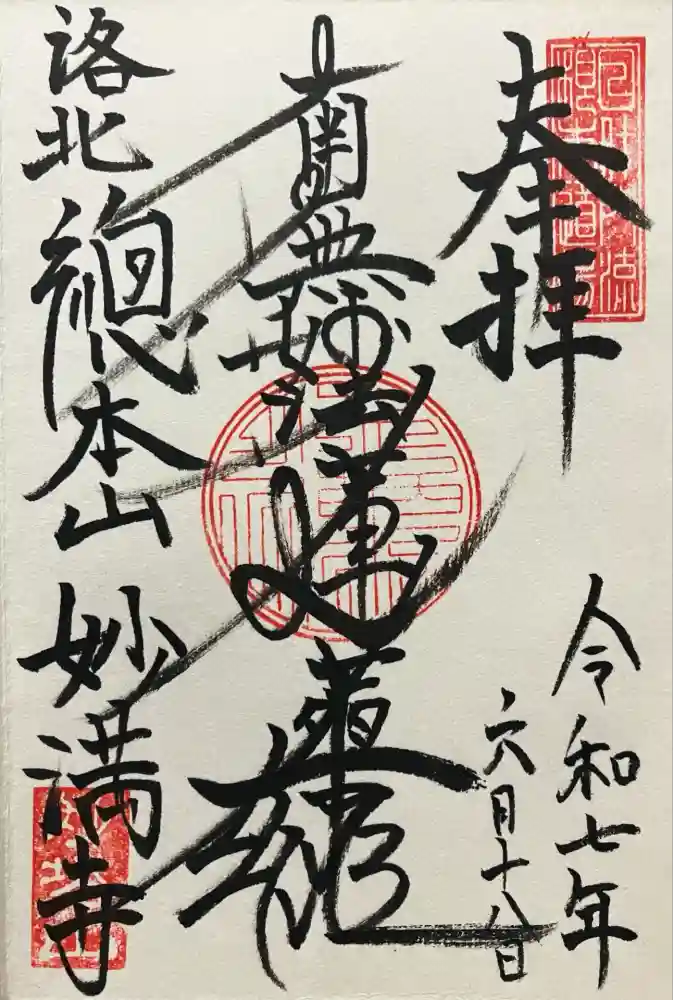 奉拝
令和七年
六月十八日
南無妙法蓮華経
洛北
總本山
妙満寺